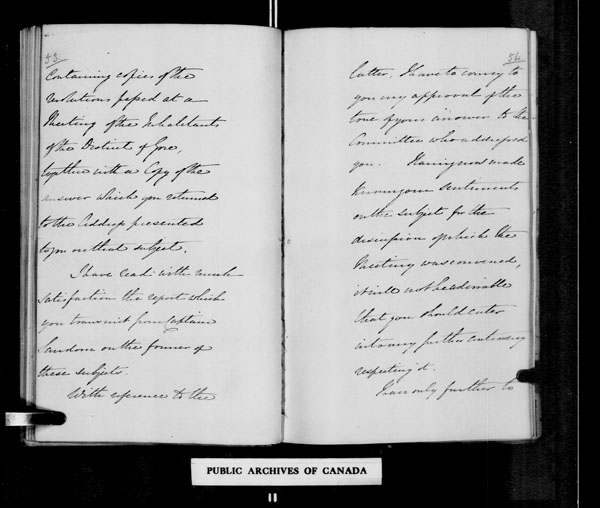 53
Containing copies of the
resolutions passed at a
Meeting of the Inhabitants
of the District of Gore,
together with a Copy of the
answer which you returned
to the Address presented
to you on that subject.
I have read with much
satisfaction the report which
you transmit from Captain
Sandom on the former of
these subjects.
With reference to the
54
latter, I have to convey to
you my approval of the
tone of your answer to the
Committee who addressed
you. Having now made
known your sentiments
on the subject for the
discussion of which the
Meeting was convened,
it will not be advisable
that you should enter
into any further controversy
respecting it.
I have only further to
PUBLIC ARCHIVES OF CANADA